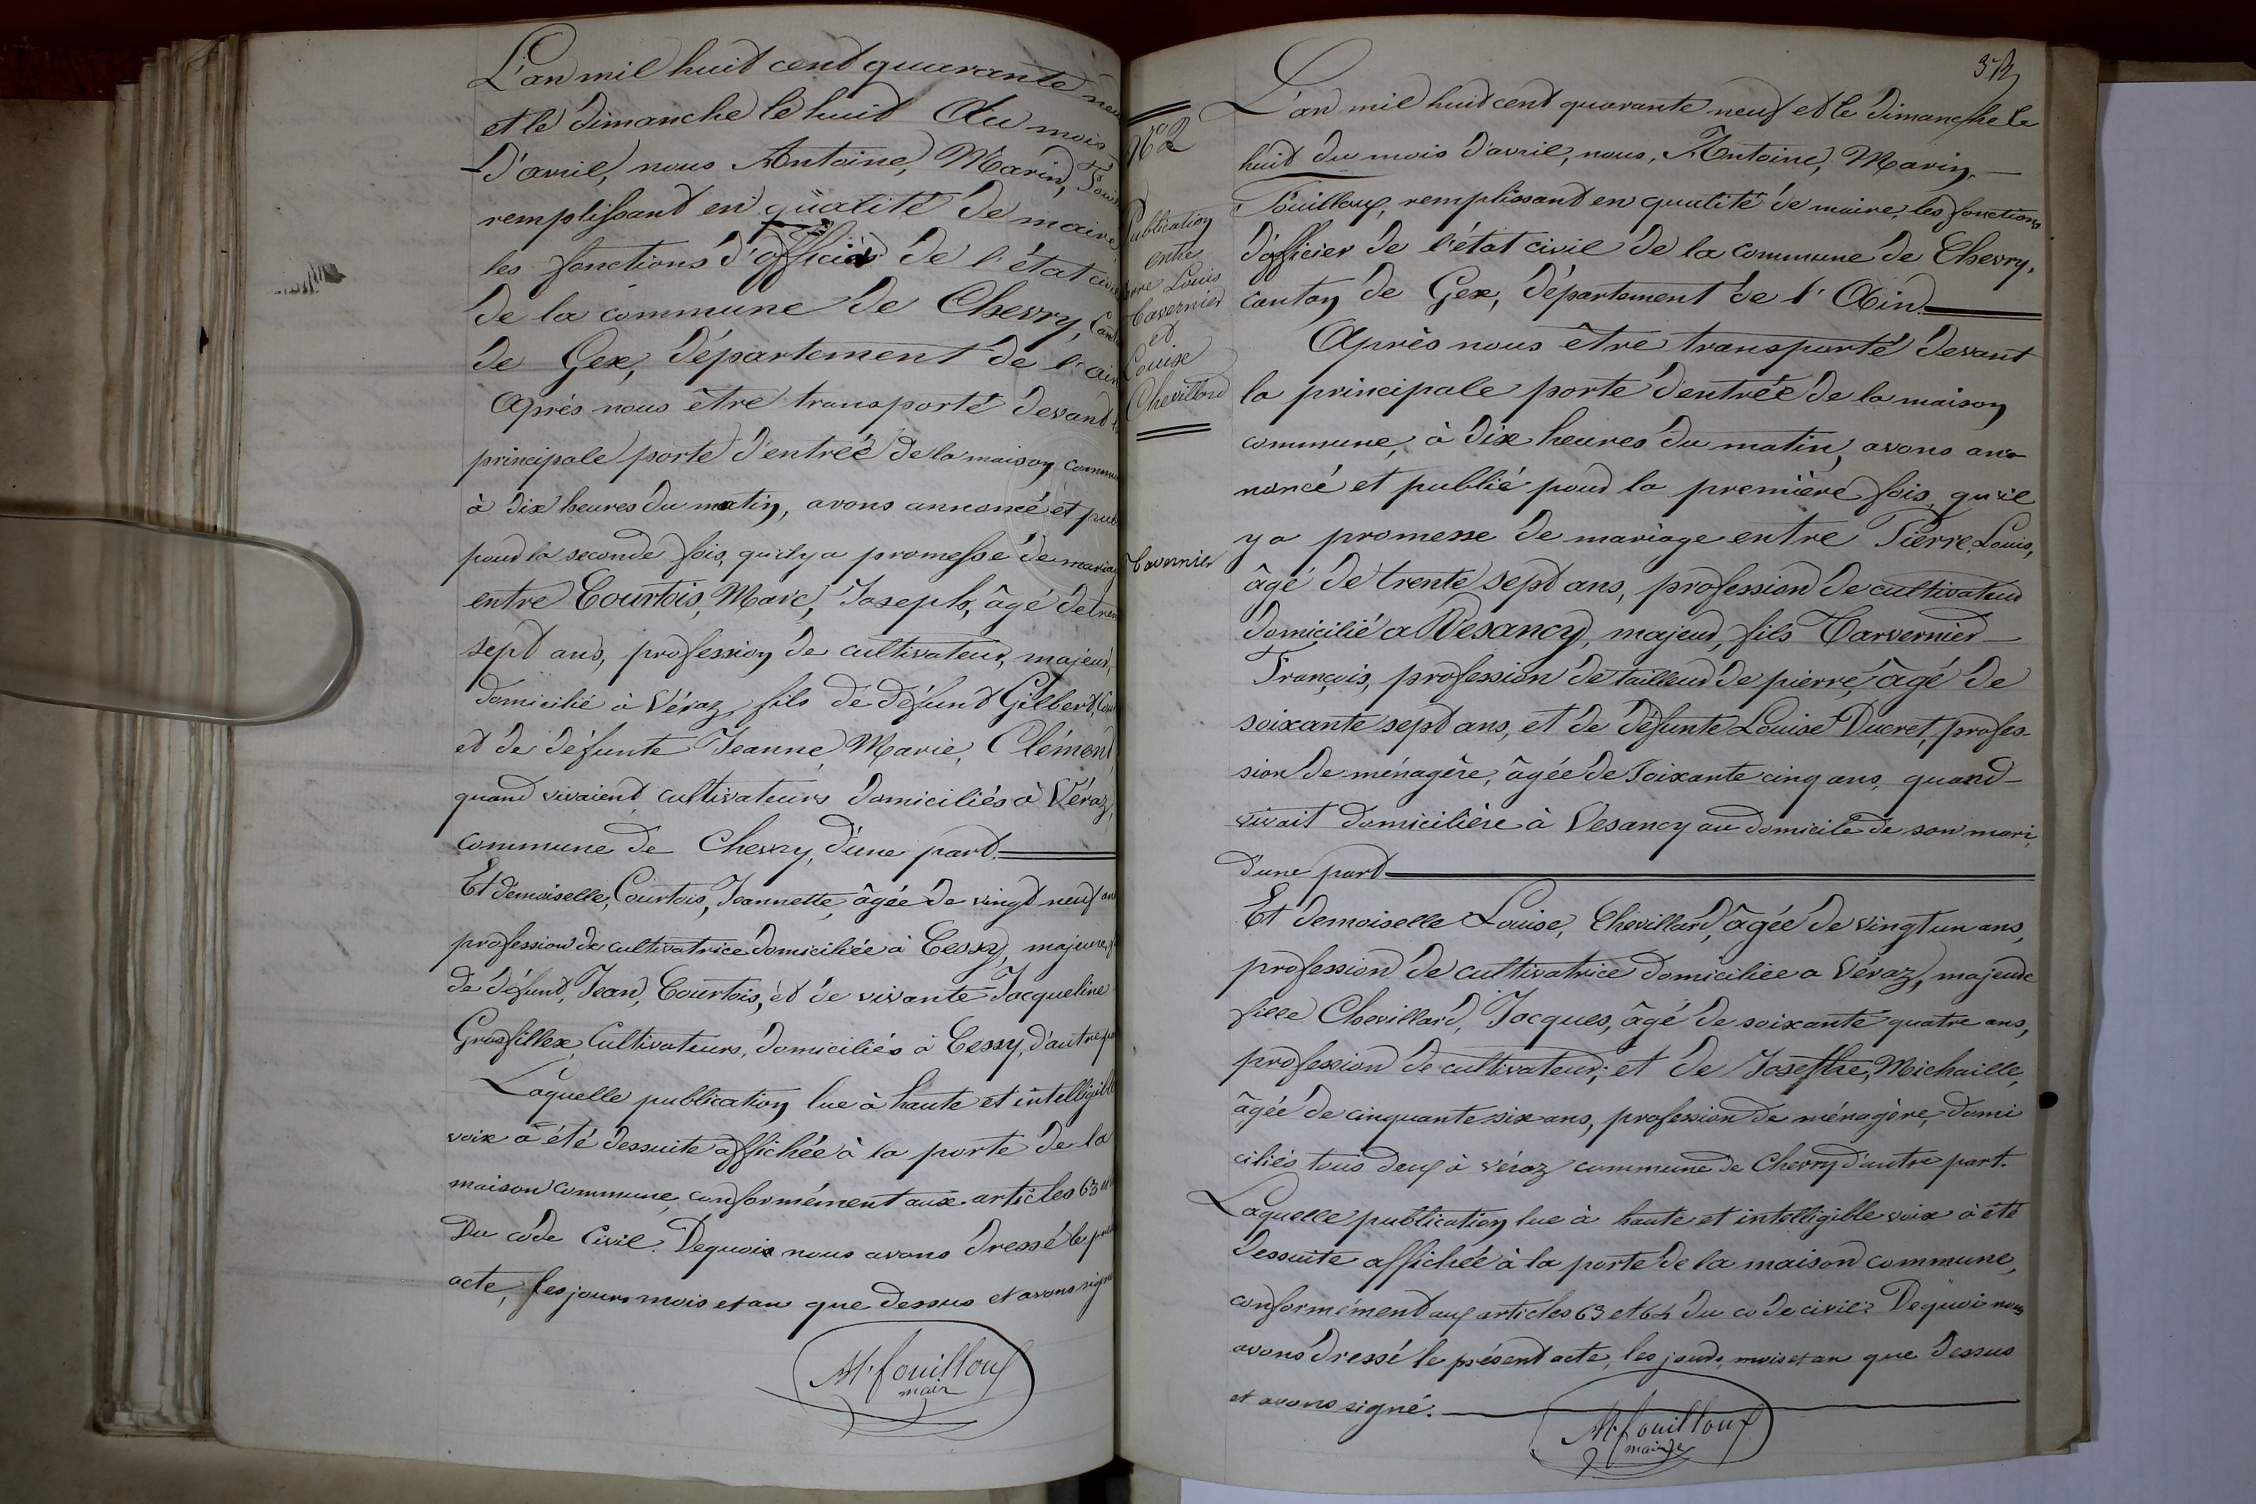 L'an mil huit cent quarante neu
et le dimanche le huit du mois
D'avril, nous Antoine, Marin, Foui
remplissant en qualité de maire
les fonctions d'officier de l'état civ
de la commune de Chevry, Cant
de Gex, département de l'ain
Après nous être transporté devant l
principale porte d'entrée de la maison commun
à dix heures du matin, avons annoncé et pub
pour la seconde fois, qu'il y a promesse de maria
entre Courtois, Marc, Joseph, âgé de tren
sept ans, profession de cultivateur, majeur,
domicilié à Véraz, fils de défunt Gilbert, Cou
et de défunte Jeanne, Marie, Clément,
quand vivaient cultivateurs domiciliés à Véraz,
commune de Chevry, d'une part.
Et demoiselle, Courtois, Jeannette, âgée de vingt neuf ans
profession de cultivatrice domiciliée à Cessy, majeure, f
de défunt, Jean, Courtois, et de vivante Jacqueline
Grosfillex, Cultivateurs, domiciliés à Cessy, d'autre pa
Laquelle publication lue à haute et intelligible
voix à été dessuite affichée à la porte de la
maison commune, conformément aux articles 63 et
Du code Civil. Dequoi nous avons dressé le pré
acte, les jour, mois et an que dessus et avons signé
M. fouilloux
mair
3
No 2
Publication
entre
erre Louis
Tavernier
et
Louise
Chevillard
Tavernier
L'an mil huit cent quarante neuf et le dimanche le
huit du mois d'avril, nous, Antoine, Marin,
Fouilloux, remplissant en qualité de maire, les fonctions
d'officier de l'état civil de la commune de Chevry,
canton de Gex, département de l'Ain.
Après nous être transporté devant
la principale porte d'entrée de la maison
commune, à dix heures du matin, avons an
noncé et publié pour la première fois, qu'il
y a promesse de mariage entre Pierre, Louis,
âgé de trente sept ans, profession de cultivateur
domicilié a Vesancy, majeur, fils Tarvernier
François, profession de tailleur de pierre, âgé de
soixante sept ans, et de défunte Louise Ducret, profes-
sion de ménagère, âgée de soixante cinq ans, quand
vivait domicilière à Vesancy au domicile de son mari,
d'une part
Et demoiselle Louise, Chevillard, âgée de vingt un ans,
profession de cultivatrice domiciliée a Véraz, majeure
fille Chevillard, Jacques, âgé de soixante quatre ans,
profession de cultivateur; et de Josephte, Michaille,
âgée de cinquante six ans, profession de ménagère, domi
ciliés tous deux à véraz commune de Chevry d'autre part.
Laquelle publication lue à haute et intelligible voix à été
dessuite affichée à la porte de la maison commune,
conformément aux articles 63 et 64 du code civil. Dequoi nous
avons dressé le présent acte, les jours, mois et an que dessus
et avons signé.
M. fouilloux
maire